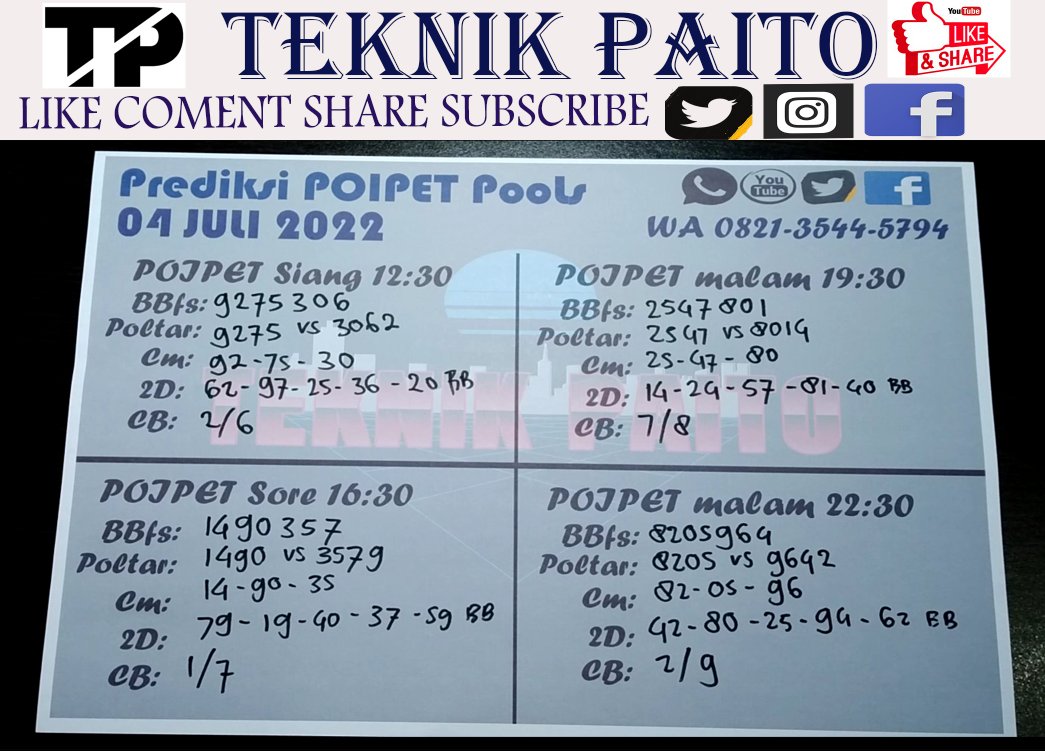 TP
TEKNIK PAITO
YouTube
LIKE
& SHARE
LIKE COMENT SHARE SUBSCRIBE
Prediksi POIPET Pools
04 JULI 2022
You
Tube
WA 0821-3544-5794
POIPET Siang 12:30
BBfs: 9275306
Poltar: 9275 vs 3062
Cm: 92-75-30
2D: 62-97-25-36-20 BB
CB: 2/6
POIPET malam 19:30
BBfs: 2547801
Poltar: 2547 vs 8014
Cm: 25-47-80
2D: 14-24-57-81-40 BB
CB: 7/8
TEKNIK PAITO
POIPET Sore 16:30
BBfs: 1490357
Poltar: 1490 vs 3579
Cm: 14-90-35
2D: 79-19-40-37-59 BB
CB: 1/7
POIPET malam 22:30
BBfs: 8205964
Poltar: 8205 vs 9642
Cm: 82-05-96
2D: 42-80-25-94-62 BB
CB: 2/9